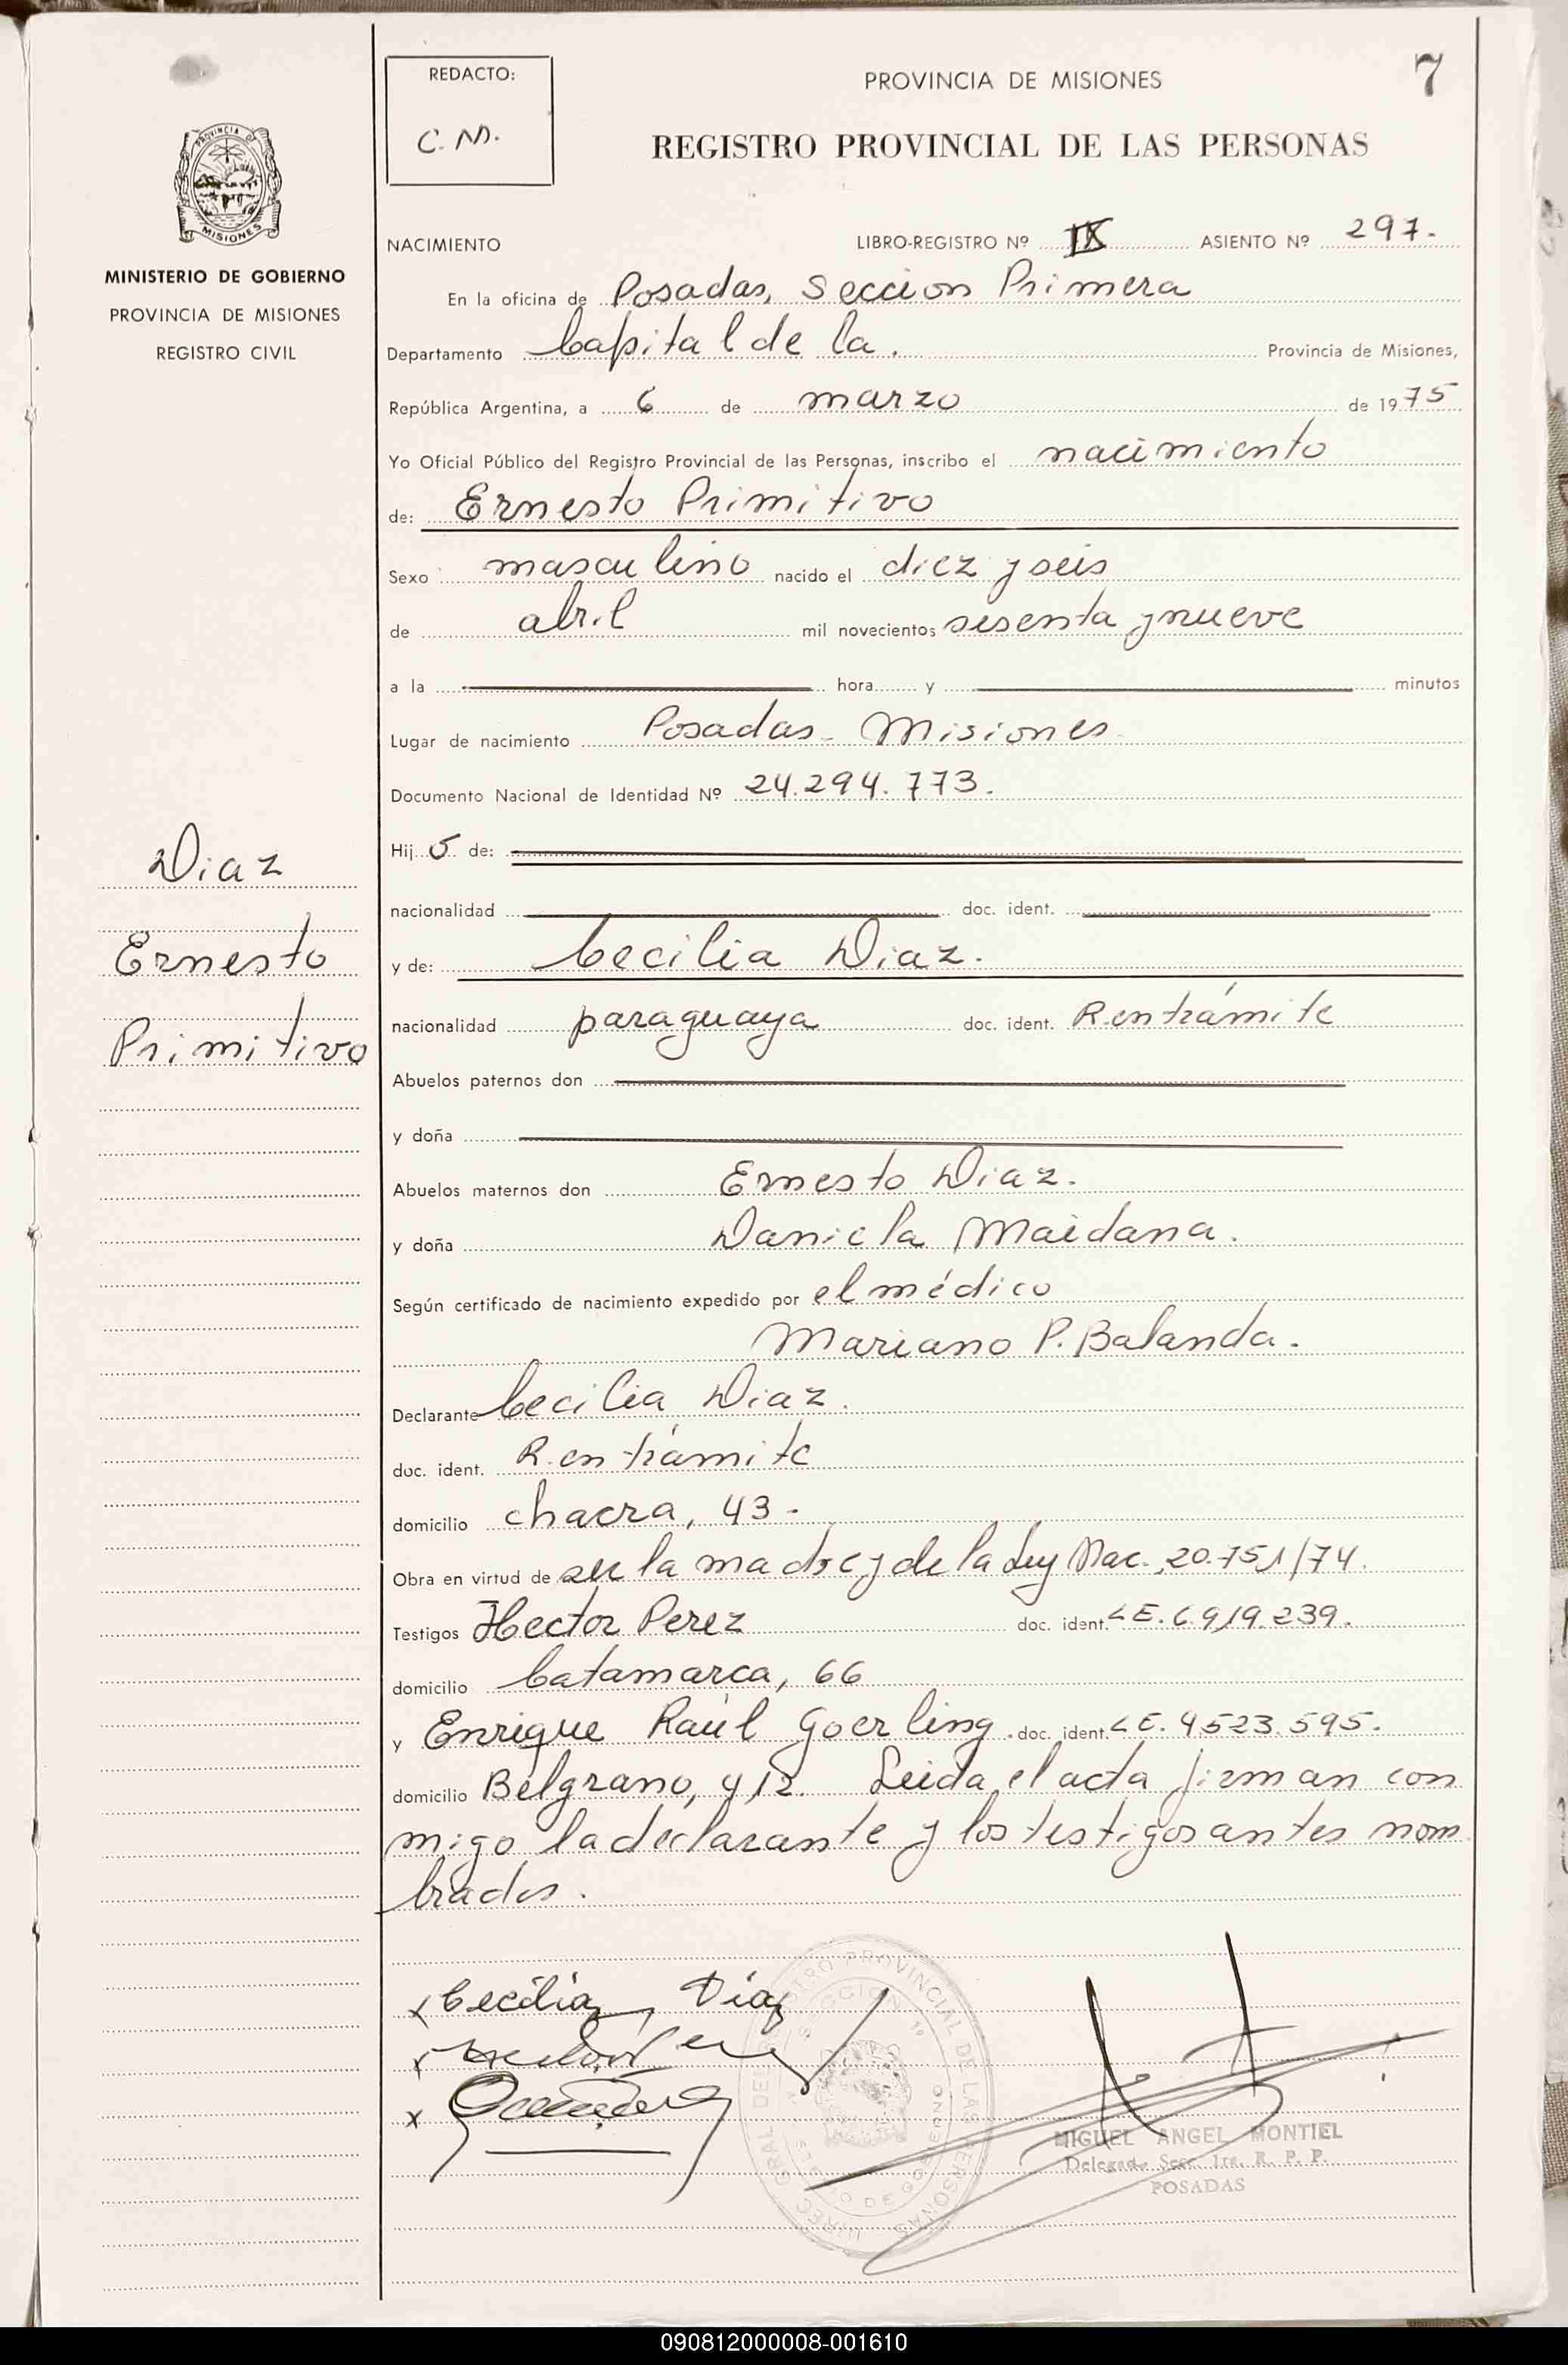 7
REDACTO:
C. M.
PROVINCIA DE MISIONES
REGISTRO PROVINCIAL DE LAS PERSONAS
PROVINCIA DE
MISIONES
MINISTERIO DE GOBIERNO
PROVINCIA DE MISIONES
REGISTRO CIVIL
NACIMIENTO LIBRO-REGISTRO Nº IX ASIENTO Nº 297.
En la oficina de Posadas, Seccion Primera
Departamento Capital de la. Provincia de Misiones,
República Argentina, a 6 de marzo de 1975
Yo Oficial Público del Registro Provincial de las Personas, inscribo el nacimiento
de: Ernesto Primitivo
Sexo masculino nacido el diez y seis
de abril mil novecientos sesenta y nueve
a la hora y minutos
Lugar de nacimiento Posadas - Misiones
Documento Nacional de Identidad Nº 24.294.773.
Hijo de:
nacionalidad doc. ident.
y de: Cecilia Diaz.
nacionalidad paraguaya doc. ident. R. en trámite
Abuelos paternos don
y doña
Abuelos maternos don Ernesto Diaz.
y doña Daniela Maidana.
Según certificado de nacimiento expedido por el médico
Mariano P. Balanda.
Declarante Cecilia Diaz.
doc. ident. R. en trámite
domicilio chacra, 43 -
Obra en virtud de ser la madre y de la Ley Nac. 20.751/74.
Testigos Hector Perez doc. ident. LE. 6.919.239.
domicilio Catamarca, 66
y Enrique Raúl Goerling. doc. ident. LE. 4.523.595.
domicilio Belgrano, 412. Leida el acta firman con
migo la declarante y los testigos antes nom
brados.
Diaz
Ernesto
Primitivo
x Cecilia Diaz
x
x
REGISTRO PROVINCIAL DE LAS PERSONAS
SECCION 1º
MIGUEL ANGEL MONTIEL
Delegado Secc. 1ra. R. P. P.
POSADAS
090812000008-001610